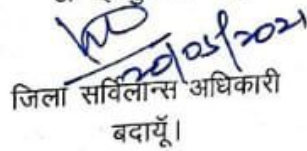 20/05/2021
जिला सर्विलान्स अधिकारी
बदायूँ।